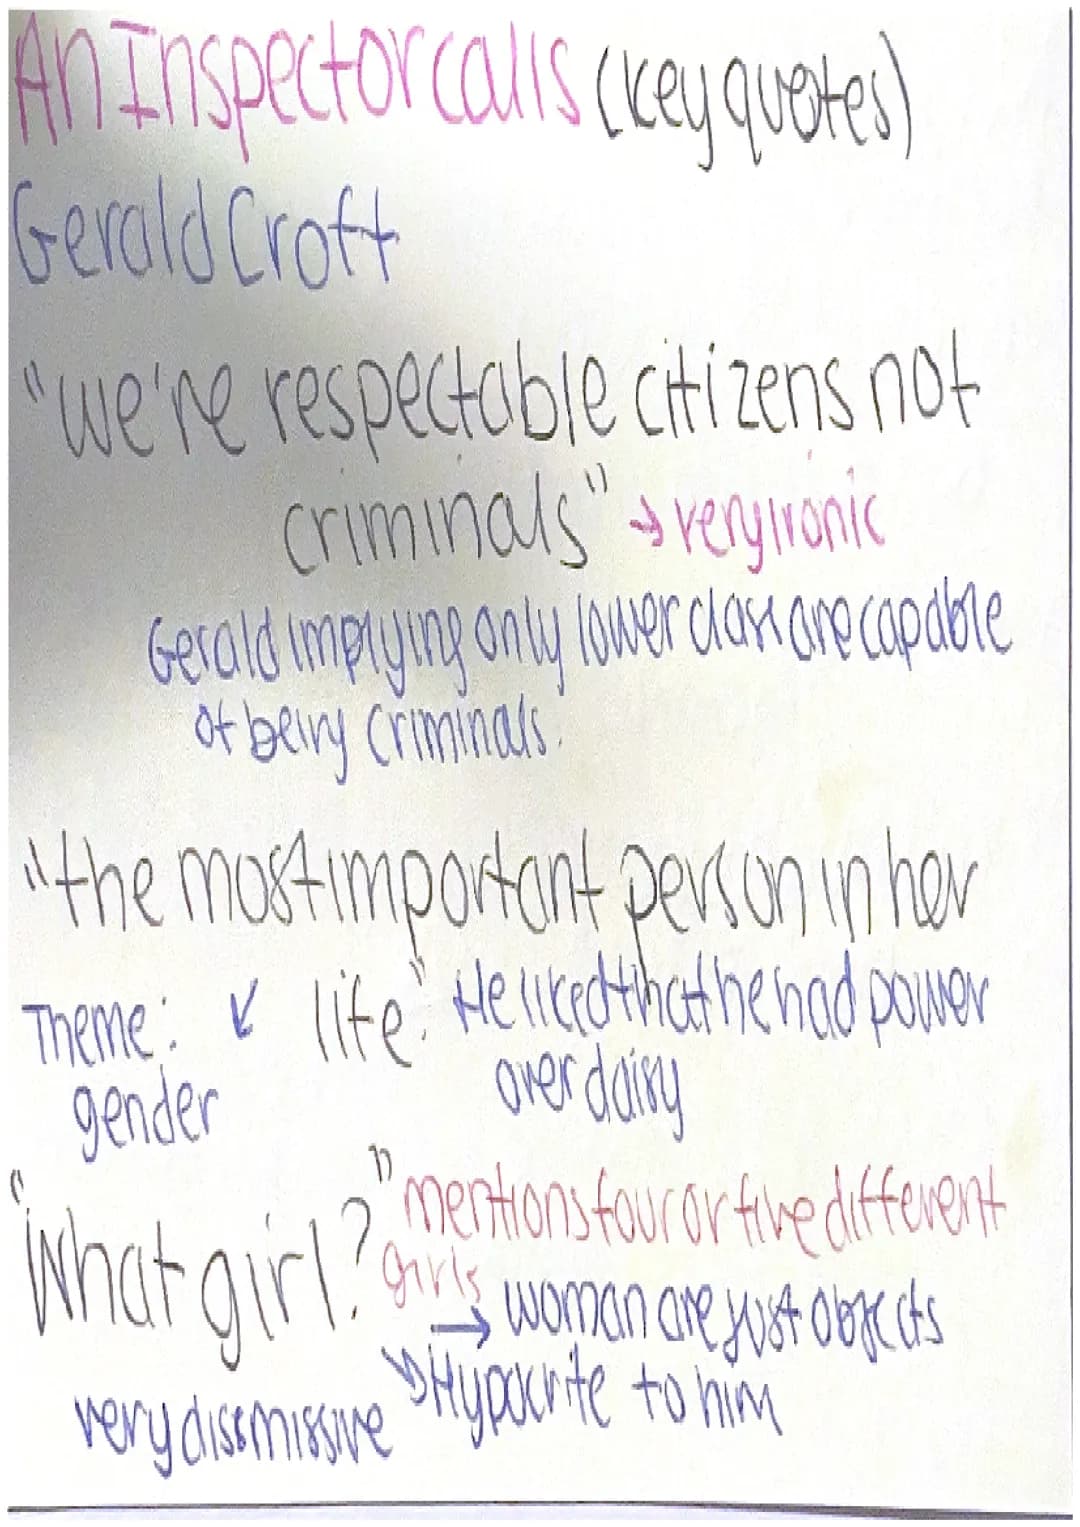 An Inspector calls (key quotes)
Gerald Croft
"we're respectable citizens not
criminals" → very ironic
Gerald implying only lower class are capable
of being criminals.
"the most important person in her
life." He liked that he had power
over daisy
Theme: ↙
gender
"What girl?" mentions four or five different
girls
→ woman are just objects
to him
↘ Hypocrite
very dissmissive